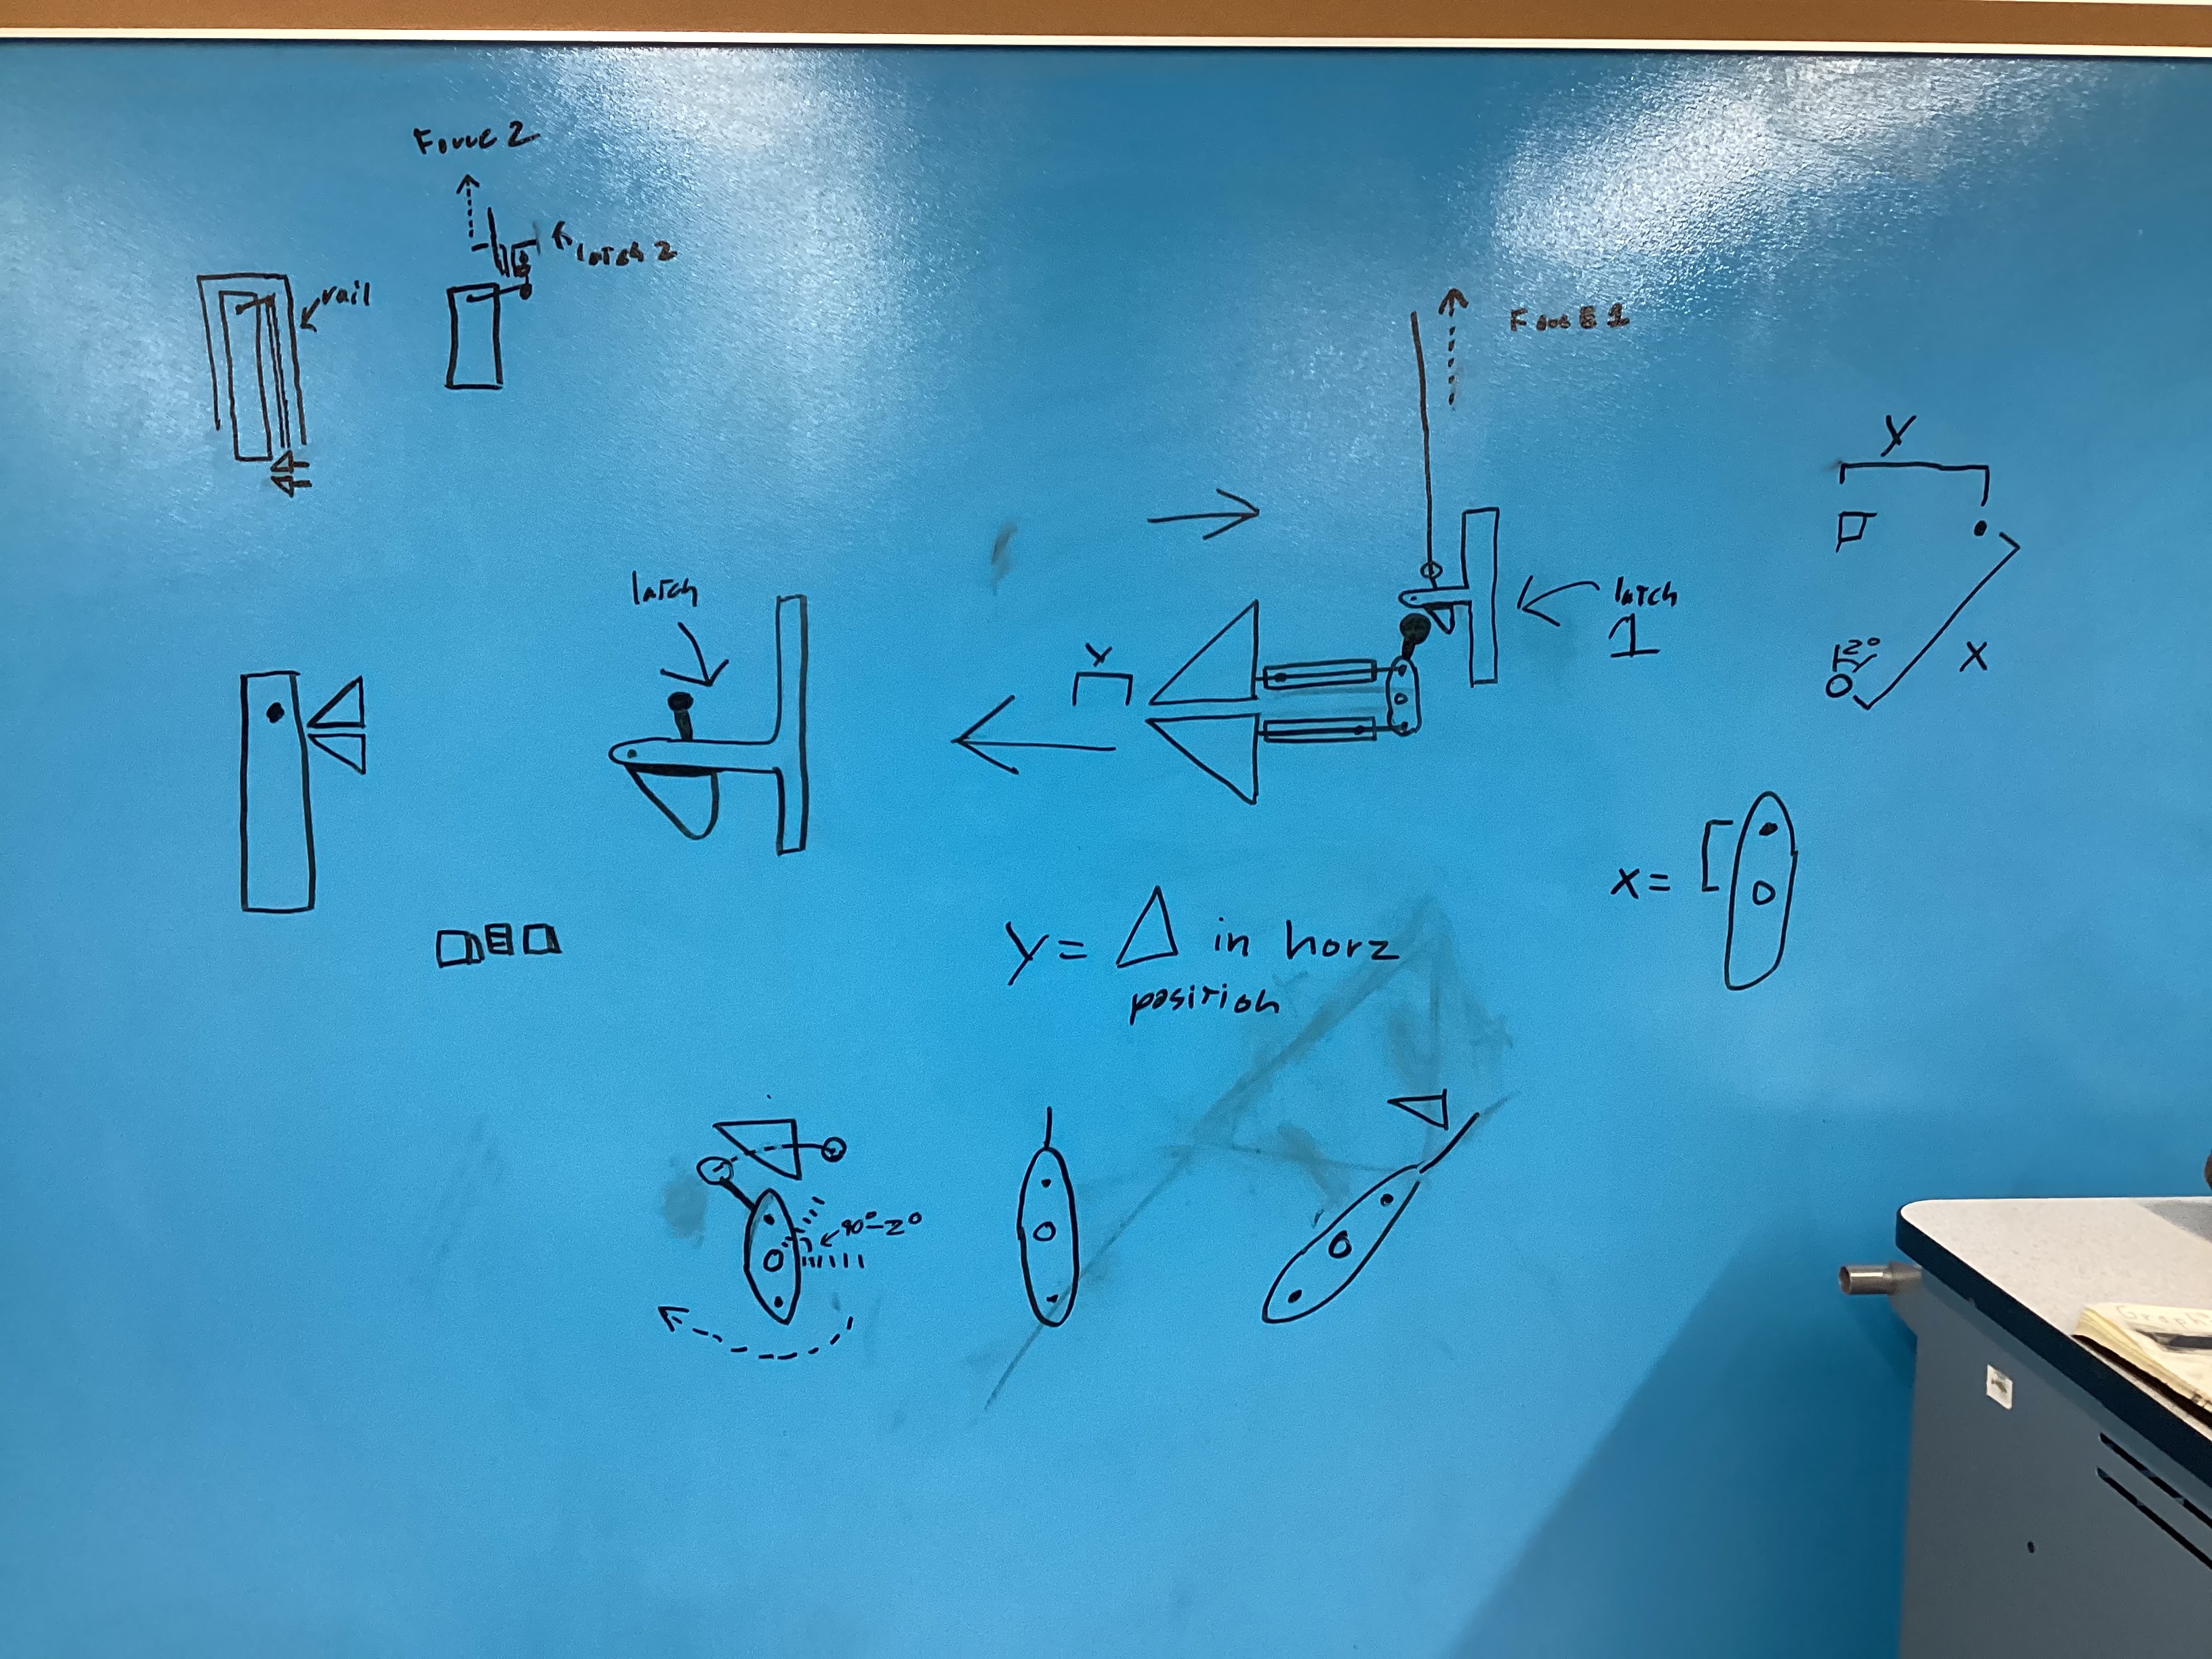 Force 2
latch 2
rail
Force 1
Y
latch
latch
1
2°
X
Y
X =
Y = Δ in horz
position
90°-2°